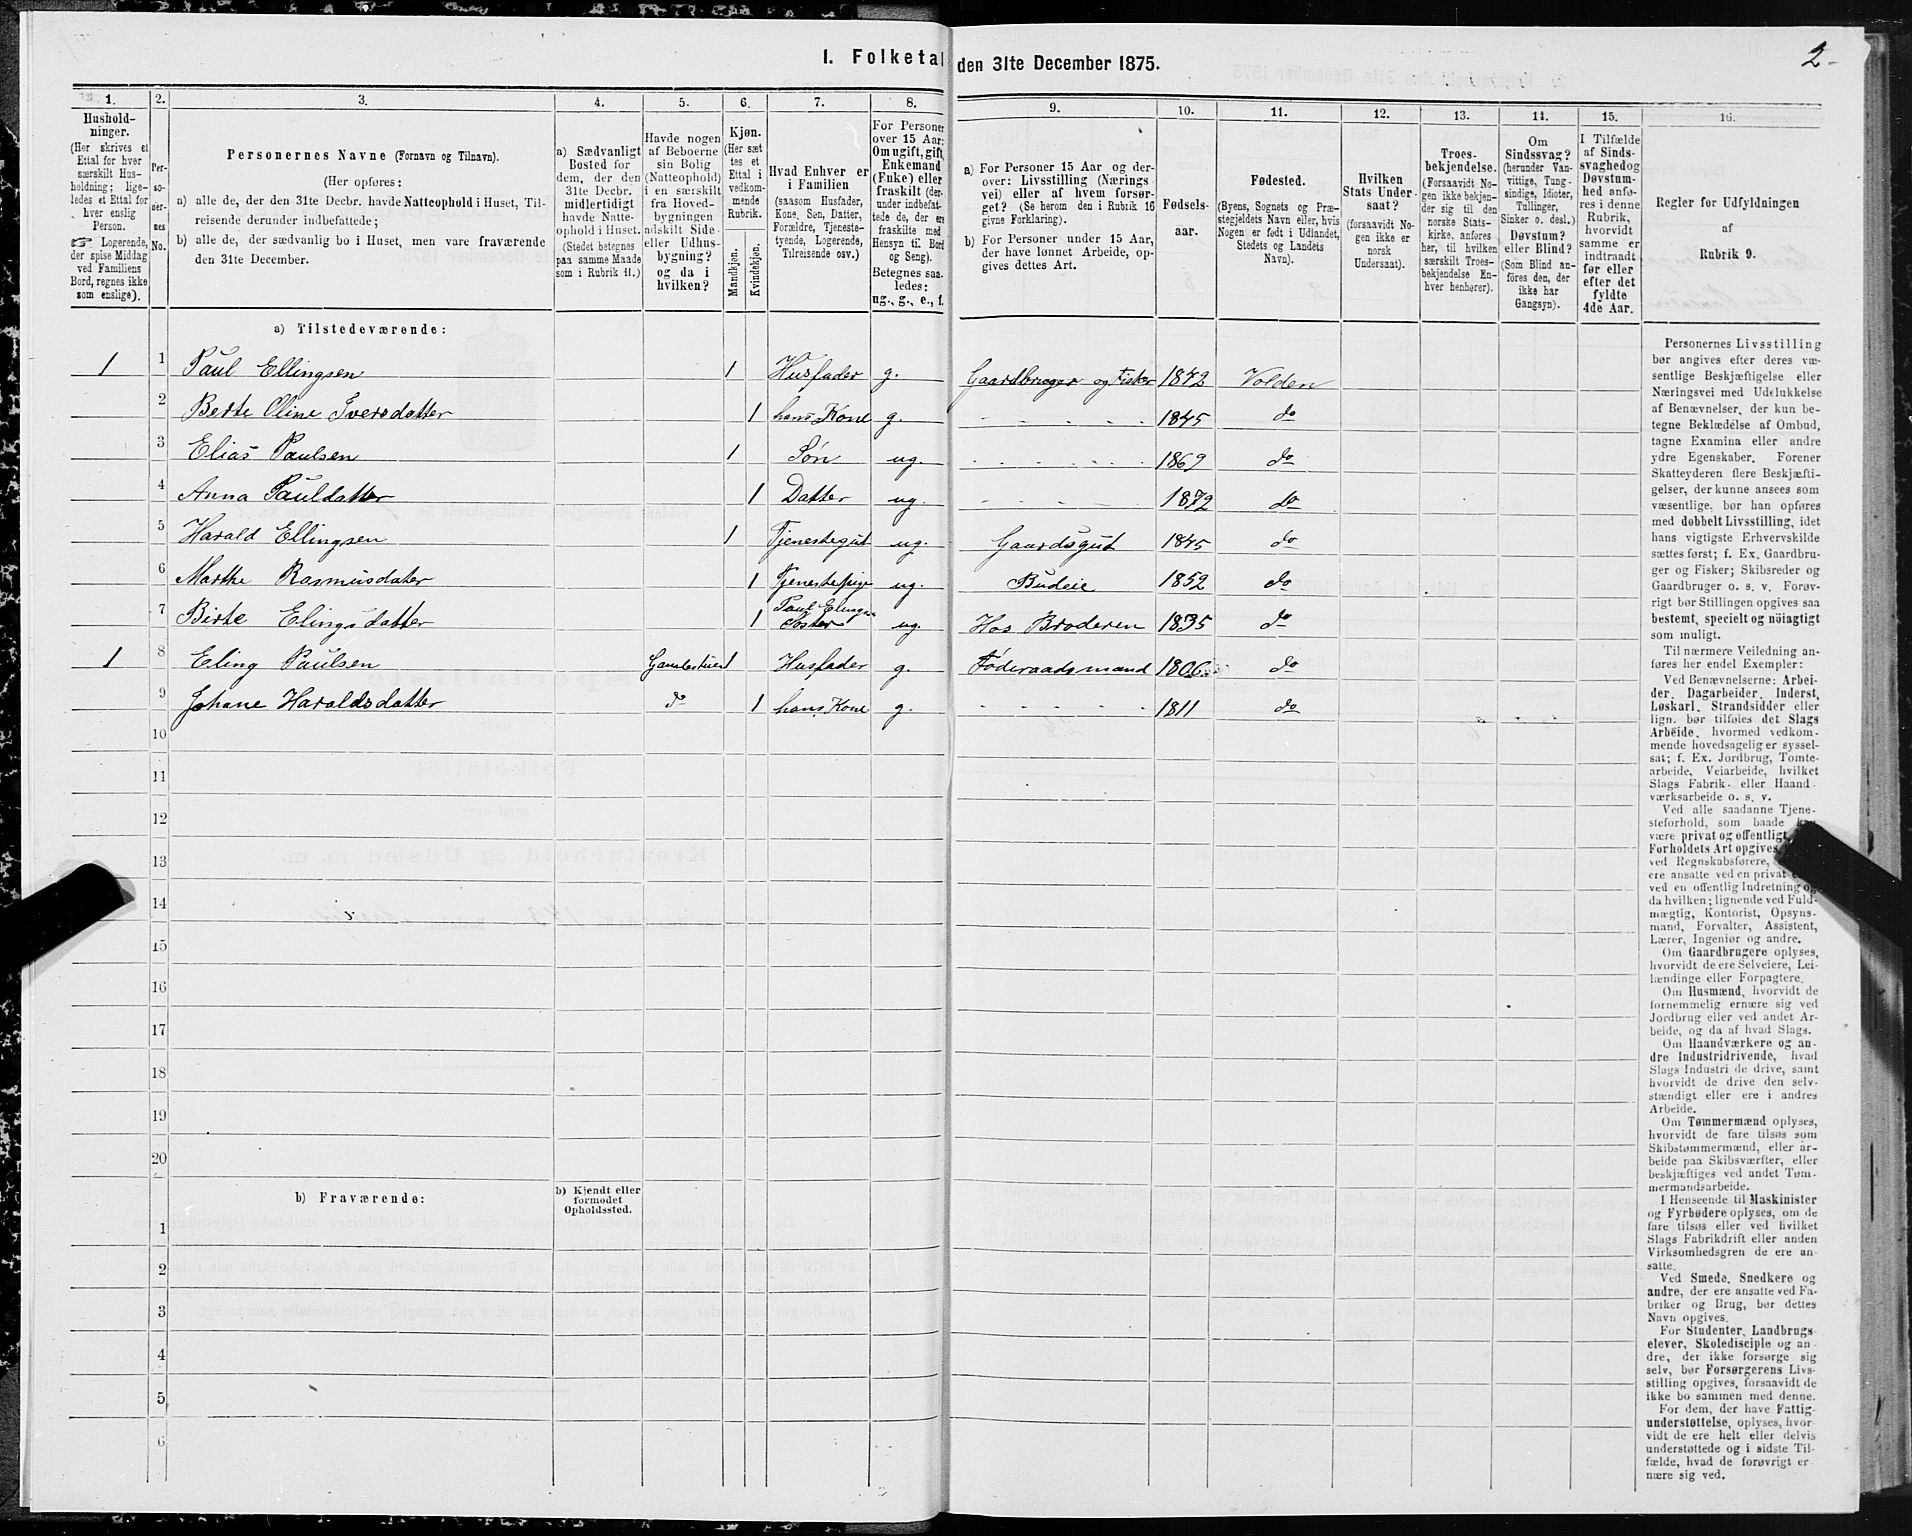 I. Folketal den 31te December 1875.
2-
1.
2.
3.
4.
5.
6.
7.
8.
9.
10.
11.
12.
13.
14.
15.
16.
Hushold-
ninger.
(Her skrives et
Ettal for hver
særskilt Hus-
holdning; lige-
ledes et Ettal for
hver enslig
Person.
☞ Logerende,
der spise Middag
ved Familiens
Bord, regnes ikke
som enslige).
Per-
so-
ner-
nes
No.
Personernes Navne (Fornavn og Tilnavn).
(Her opføres:
a) alle de, der den 31te Decbr. havde Natteophold i Huset, Til-
reisende derunder indbefattede;
b) alle de, der sædvanlig bo i Huset, men vare fraværende
den 31te December.
a) Sædvanligt
Bosted for
dem, der den
31te Decbr.
midlertidigt
havde Natte-
ophold i Huset.
(Stedet betegnes
paa samme Maade
som i Rubrik 11.)
Havde nogen
af Beboerne
sin Bolig
(Natteophold)
i en særskilt
fra Hoved-
bygningen
adskilt Side-
eller Udhus-
bygning?
og da i
hvilken?
Kjøn.
(Her sæt
tes et
Ettal i
vedkom-
mende
Rubrik.
Mandkjøn.
Kvindekjøn.
Hvad Enhver er
i Familien
(saasom Husfader,
Kone, Søn, Datter,
Forældre, Tjeneste-
tyende, Logerende,
Tilreisende osv.)
For Personer
over 15 Aar:
Om ugift, gift,
Enkemand
(Enke) eller
fraskilt (der-
under indbefat-
tede de, der er
fraskilte med
Hensyn til Bord
og Seng).
Betegnes saa-
ledes:
ug., g., e., f.
a) For Personer 15 Aar og der-
over: Livsstilling (Nærings
vei) eller af hvem forsør-
get? (Se herom den i Rubrik 16
givne Forklaring).
b) For Personer under 15 Aar,
der have lønnet Arbeide, op-
gives dettes Art.
Fødsels-
aar.
Fødested.
(Byens, Sognets og Præ-
stegjeldets Navn eller, hvis
Nogen er født i Udlandet,
Stedets og Landets
Navn).
Hvilken
Stats Under-
saat?
(forsaavidt No-
gen ikke er
norsk
Undersaat).
Troes-
bekjendelse.
(Forsaavidt No-
gen ikke bekjen-
der sig til den
norske Stats-
kirke, anføres
her, til hvilken
særskilt Troes-
bekjendelse En-
hver henhører).
Om
Sindssvag?
(herunder Van-
vittige, Tung-
sindige, Idioter,
Tullinger,
Sinker o. desl.)
Døvstum?
eller Blind?
(Som Blind an-
føres den, der
ikke har
Gangsyn).
I Tilfælde
af Sinds-
svaghed og
Døvstum-
hed anfø-
res i denne
Rubrik,
hvorvidt
samme er
indtraadt
før eller
efter det
fyldte
4de Aar.
Regler for Udfyldningen
af
Rubrik 9.
a) Tilstedeværende:
1 1 Paul Ellingsen 1 Husfader g. Gaardbruger og Fisker 1842 Volden
2 Berte Oline Iversdatter 1 hans Kone g. 1845 do
3 Elias Paulsen 1 Søn ug. 1869 do
4 Anna Pauldatter 1 Datter ug. 1872 do
5 Harald Ellingsen 1 Tjenestegut ug. Gaardsgut 1845 do
6 Marthe Rasmusdater 1 Tjenestepige ug. Budeie 1852 do
7 Birte Elingsdatter 1 Paul Elingsen Søster ug. Hos Broderen 1835 do
1 8 Eling Paulsen Gamlestuen 1 Husfader g. Føderaadsmand 1806 do
9 Johane Haraldsdatter do 1 hans Kone g. 1811 do
10
11
12
13
14
15
16
17
18
19
20
b) Fraværende:
b) Kjendt eller
formodet
Opholdssted.
1
2
3
4
5
6
Personernes Livsstilling
bør angives efter deres væ-
sentlige Beskjæftigelse eller
Næringsvei med Udelukkelse
af Benævnelser, der kun be-
tegne Beklædelse af Ombud,
tagne Examina eller andre
ydre Egenskaber. Forener
Skatteyderen flere Beskjæfti-
gelser, der kunne ansees som
væsentlige, bør han opføres
med dobbelt Livsstilling, idet
hans vigtigste Erhvervskilde
sættes først; f. Ex. Gaardbru-
ger og Fisker; Skibsreder og
Gaardbruger o. s. v. Forøv-
rigt bør Stillingen opgives saa
bestemt, specielt og nöiagtigt
som muligt.
Til nærmere Veiledning an-
føres her endel Exempler:
Ved Benævnelserne: Arbei-
der, Dagarbeider, Inderst,
Løskarl, Strandsidder eller
lign. bør tilføies det Slags
Arbeide, hvormed vedkom-
mende hovedsagelig er syssel-
sat; f. Ex. Jordbrug, Tomte-
arbeide, Veiarbeide, hvilket
Slags Fabrik- eller Haand-
værksarbeide o. s. v.
Ved alle saadanne Tjene-
steforhold, som baade
være privat og offentligt,
Forholdets Art opgives,
ved Regnskabsførere,
ere ansatte ved en privat
ved en offentlig Indretning og
da hvilken; lignende ved Fuld-
mægtig, Kontorist, Opsyns-
mand, Forvalter, Assistent,
Lærer, Ingeniør og andre.
Om Gaardbrugere oplyses,
hvorvidt de ere Selveiere, Lei-
lændinge eller Forpagtere.
Om Husmænd, hvorvidt de
fornemmelig ernære sig ved
Jordbrug eller ved andet Ar-
beide, og da af hvad Slags.
Om Haandværkere og an-
dre Industridrivende, hvad
Slags Industri de drive, samt
hvorvidt de drive den selv-
stændigt eller ere i andres
Arbeide.
Om Tømmermænd oplyses,
hvorvidt de fare tilsøs som
Skibstømmermænd, eller ar-
beide paa Skibsværfter, eller
beskjæftiges ved andet Tøm-
mermandsarbeide.
I Henseende til Maskinister
og Fyrbødere oplyses, om de
fare tilsøs eller ved hvilket
Slags Fabrikdrift eller anden
Virksomhedsgren de ere an-
satte.
Ved Smede, Snedkere og
andre, der ere ansatte ved Fa-
briker og Brug, bør dettes
Navn opgives.
For Studenter, Landbrugs-
elever, Skoledisciple og an-
dre, der ikke forsørge sig
selv, bør Forsørgerens Livs-
stilling opgives, forsaavidt de
ikke bo sammen med denne.
For dem, der have Fattig-
understøttelse, oplyses, hvor-
vidt de ere helt eller delvis
understøttede og i sidste Til-
fælde, hvad de forøvrigt er-
nære sig ved.